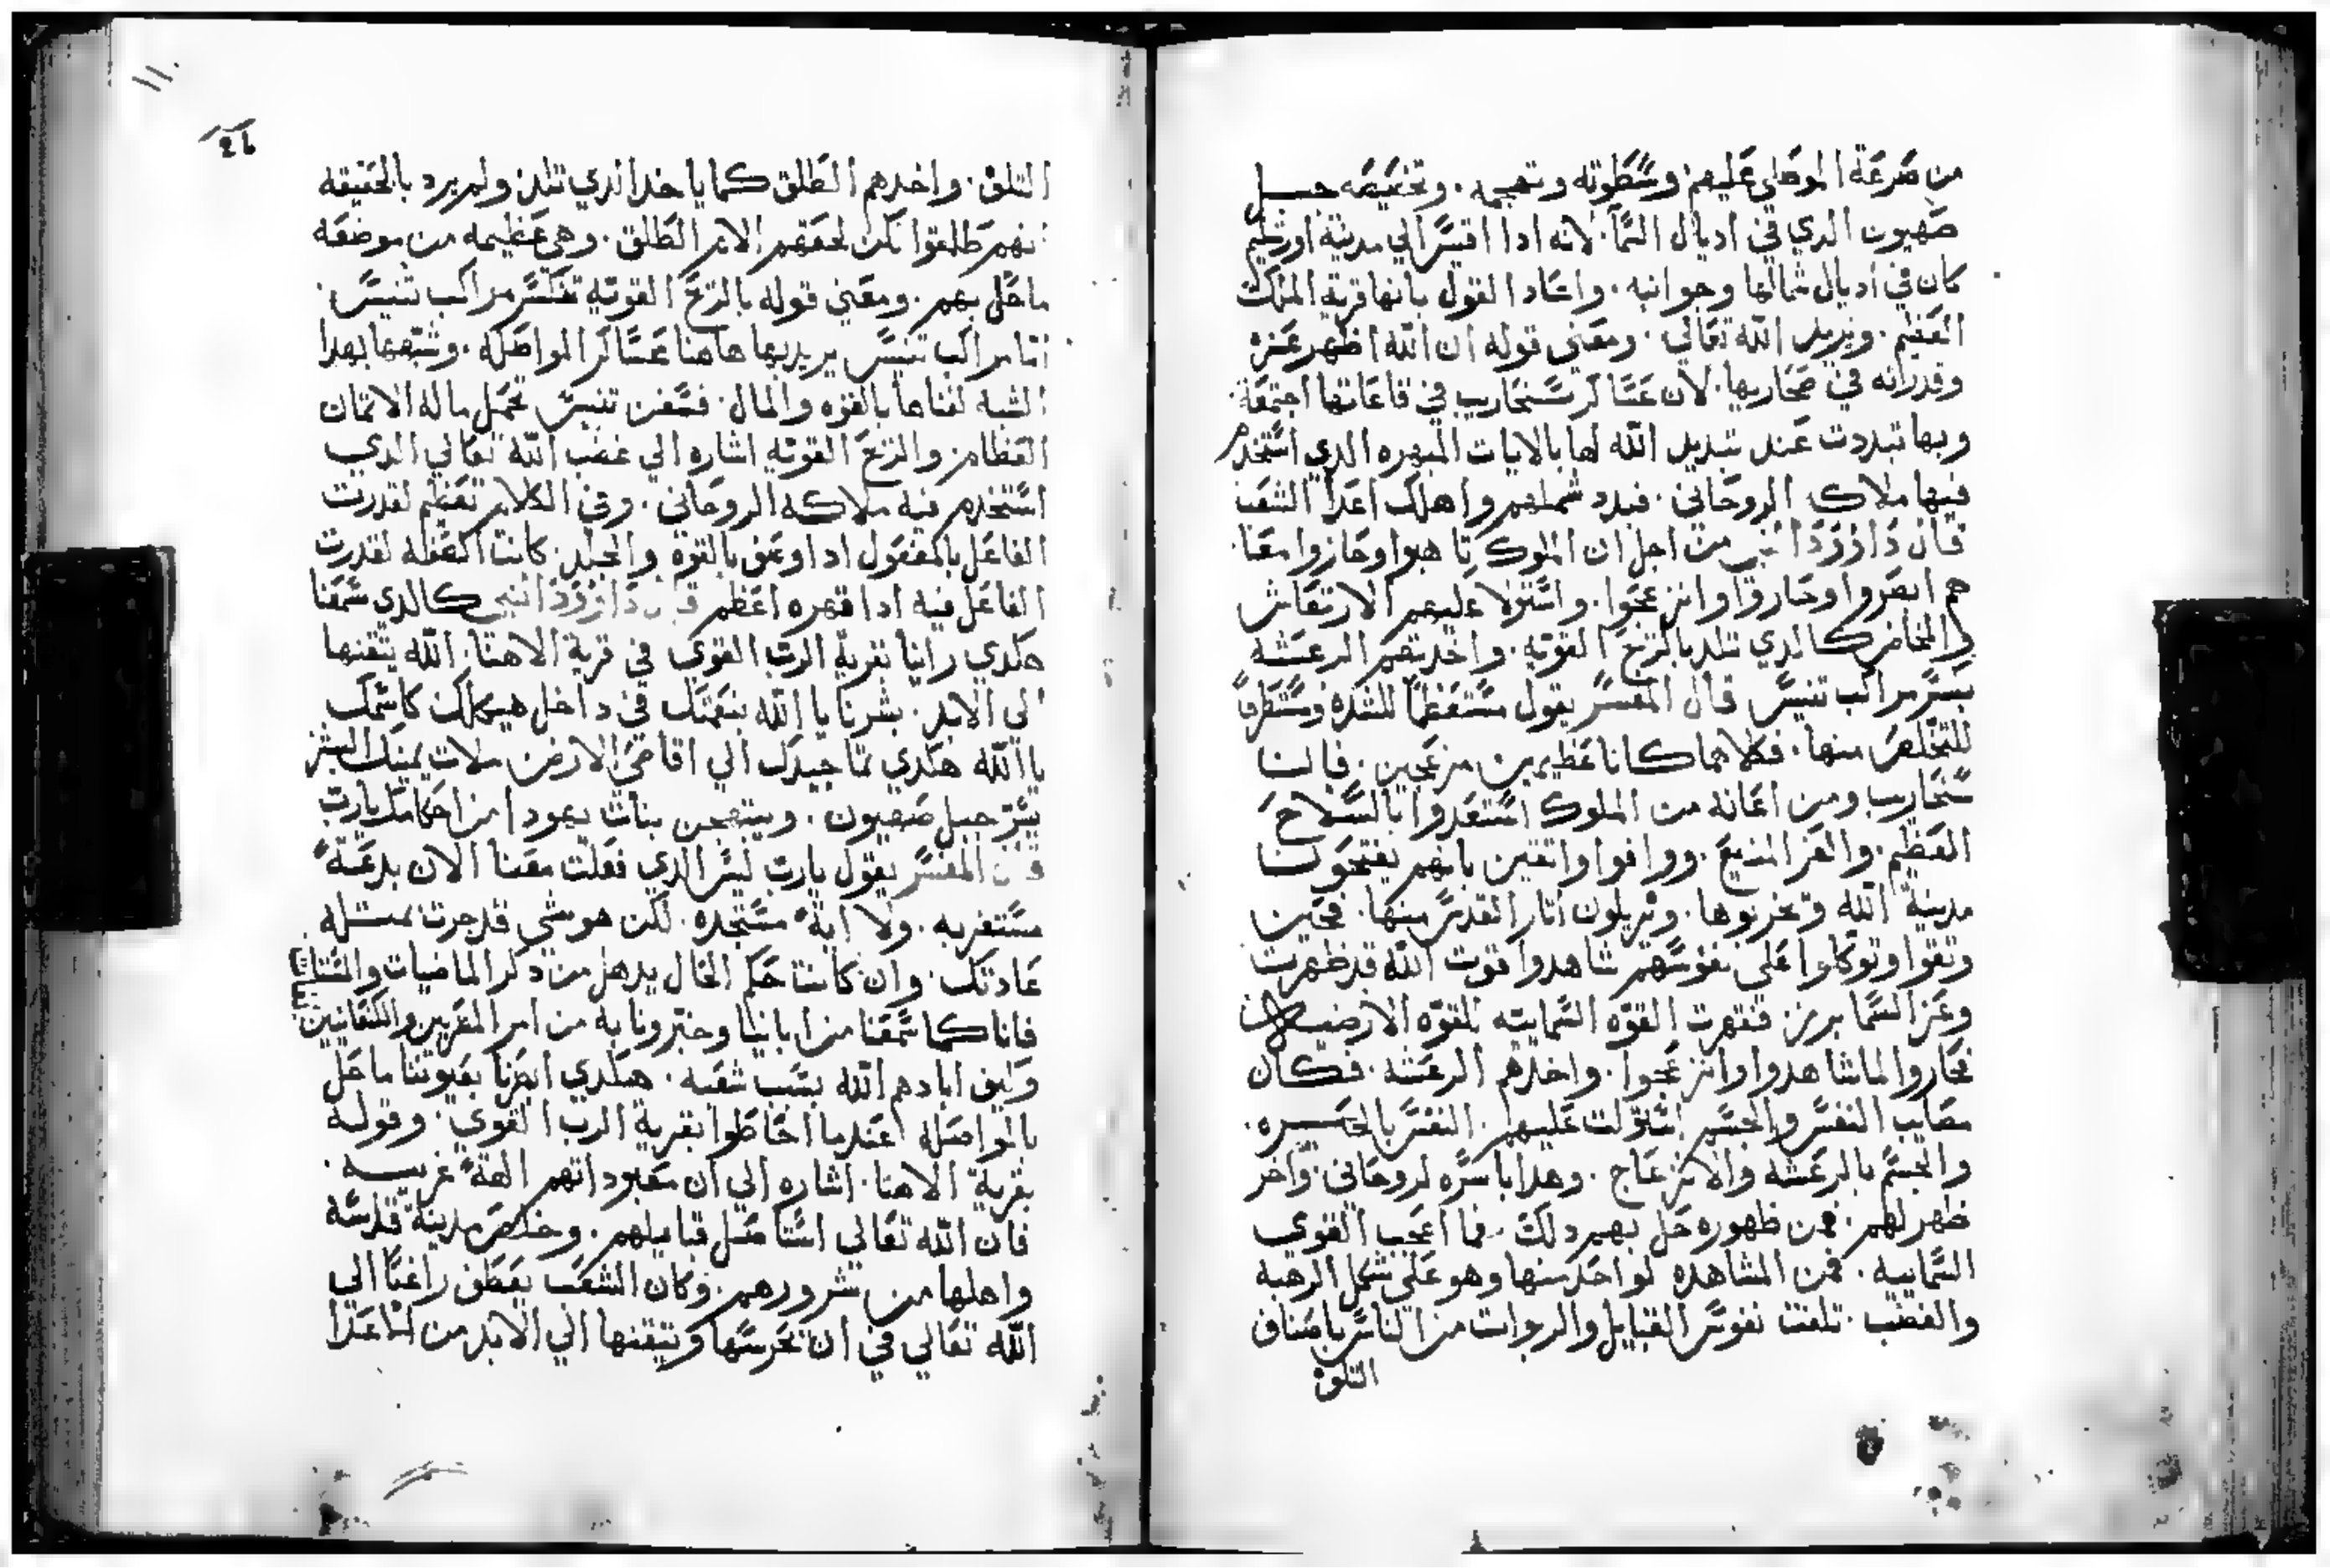 من صرعة الموصلي عليهم وسطوته وتهجمه. وتخصيصه جبل
صهيون الدي في اديال الشمال. لانه ادا اقيس الي مدينة اورشليم
كان في اديال شمالها وجوانبه. واعاد القول بانها قرية الملك
العظيم. ويريد الله تعالي. ومعني قوله ان الله اظهر عزه
وقدرته في صحاريها. لان عساكر سنحاريب في قاعاتها اجتمعة.
وبها تبددت عند تبديد الله لها بالايات المبهره الدي استخدم
فيها ملاك الروحاني. فبدد شملهم واهلك اعدا الشعب
قال داوود النبي من اجل ان الملوك تاهبوا وجازوا معا.
هم ابصروا وحاروا وانزعجوا. واستولا عليهم الارتعاش
والمخاض كالدي تلد بالريح القويه. واخدتهم الرعشه
بكسر مراكب ترسيس قال المفسر يقول مستعظما للشده ومستطرفا
للتخلص منها. فكلاهما كانا عظيمين مزعجين. فالنا
سنحاريب ومن اعانه من الملوك استعدوا بالسلاح
العظيم. والعز المنيع. ووافوا واتقين بانهم يفتحون
مدينة الله ويخربوها. ويزيلون اتار القدس منها. فحين
وتقوا وتوكلوا علي نفوسهم شاهدوا قوت الله قد ظهرت
وعز السما برز. فقهرت القوه السمايته للقوه الارضيه
فحاروا لما شاهدوا وانزعجوا. واخدهم الرعشه. فكان
مصايب النفس والجسم استولت عليهم. النفس بالحسره.
والجسم بالرعشه والانزعاج. وهدا باسره لروحاني واحد
ظهر لهم. فمن ظهوره حل بهم دلك. فما اعجب القوي
السماييه. فمن المشاهده لواحد منها وهو علي شكل الرهبه
والغضب. تلفت نفوس القبايل والربوات من الناس باصناف
التلف
26
التلف. واخدهم الطلق كما ياخد الدي تلد ولم يرد بالحقيقه
انهم طلقوا لكن لحقهم الام الطلق. وهي عظيمه من موضعه
ما حل بهم. ومعني قوله بالريح القويه تنكسر مراكب ترسيس.
اما مراكب ترسيس يريد بها هاهنا عساكر المواصله. وشبهها بهدا
الشبه لغناها بالقوه والمال. فسفن ترسيس تحمل ماله الاتمان
العظام. والريح القويه اشاره الي غضب الله تعالي الدي
استخدم فيه ملاكه الروحاني. وفي الكلام تعظيم لقدرت
الفاعل بالمفعول ادا وعف بالقوه والجلد. كانت الغلبه لقدرت
الفاعل فيه ادا قهره اعظم قال داوود النبي كالدي سمعنا
هكدي راينا بقرية الرب القوي في قرية الاهنا. الله يتقنها
الي الابد. بشرنا يا الله بنعمتك في داخل هيكلك كاسمك
يا الله هكدي تماجيدك الي اقاصي الارض ملات يمينك البر
يسر جبل صهيون. ويبتهجن بنات يهودا من احكامك يارب
قال المفسر يقول يارب ليس الدي فعلت معنا الان بدعة
مستغربه. ولا اية مستجده. لكن هو شي قد جرت بمتله
عادتك. وان كانت حكم الحال يدهل من دكر الماضيات والسالفات
فانا كما سمعنا من ابايا وخبرونا به من امر المصريين والكنعانيين
وكيف ابادهم الله بسبب شعبه. هكدي ابصرنا بعيوننا ما حل
بالمواصله عندما احاطوا بقرية الرب القوي. وقوله
بقرية الاهنا. اشاره الي ان معبوداتهم الهة غريبه.
فان الله تعالي استاصل قبايلهم. وخلص مدينة قدسه
واهلها من شرورهم. وكان الشعب بعطف راغبا الي
الله تعالي في ان تحرسها ويتقنها الي الابد من الاعدا